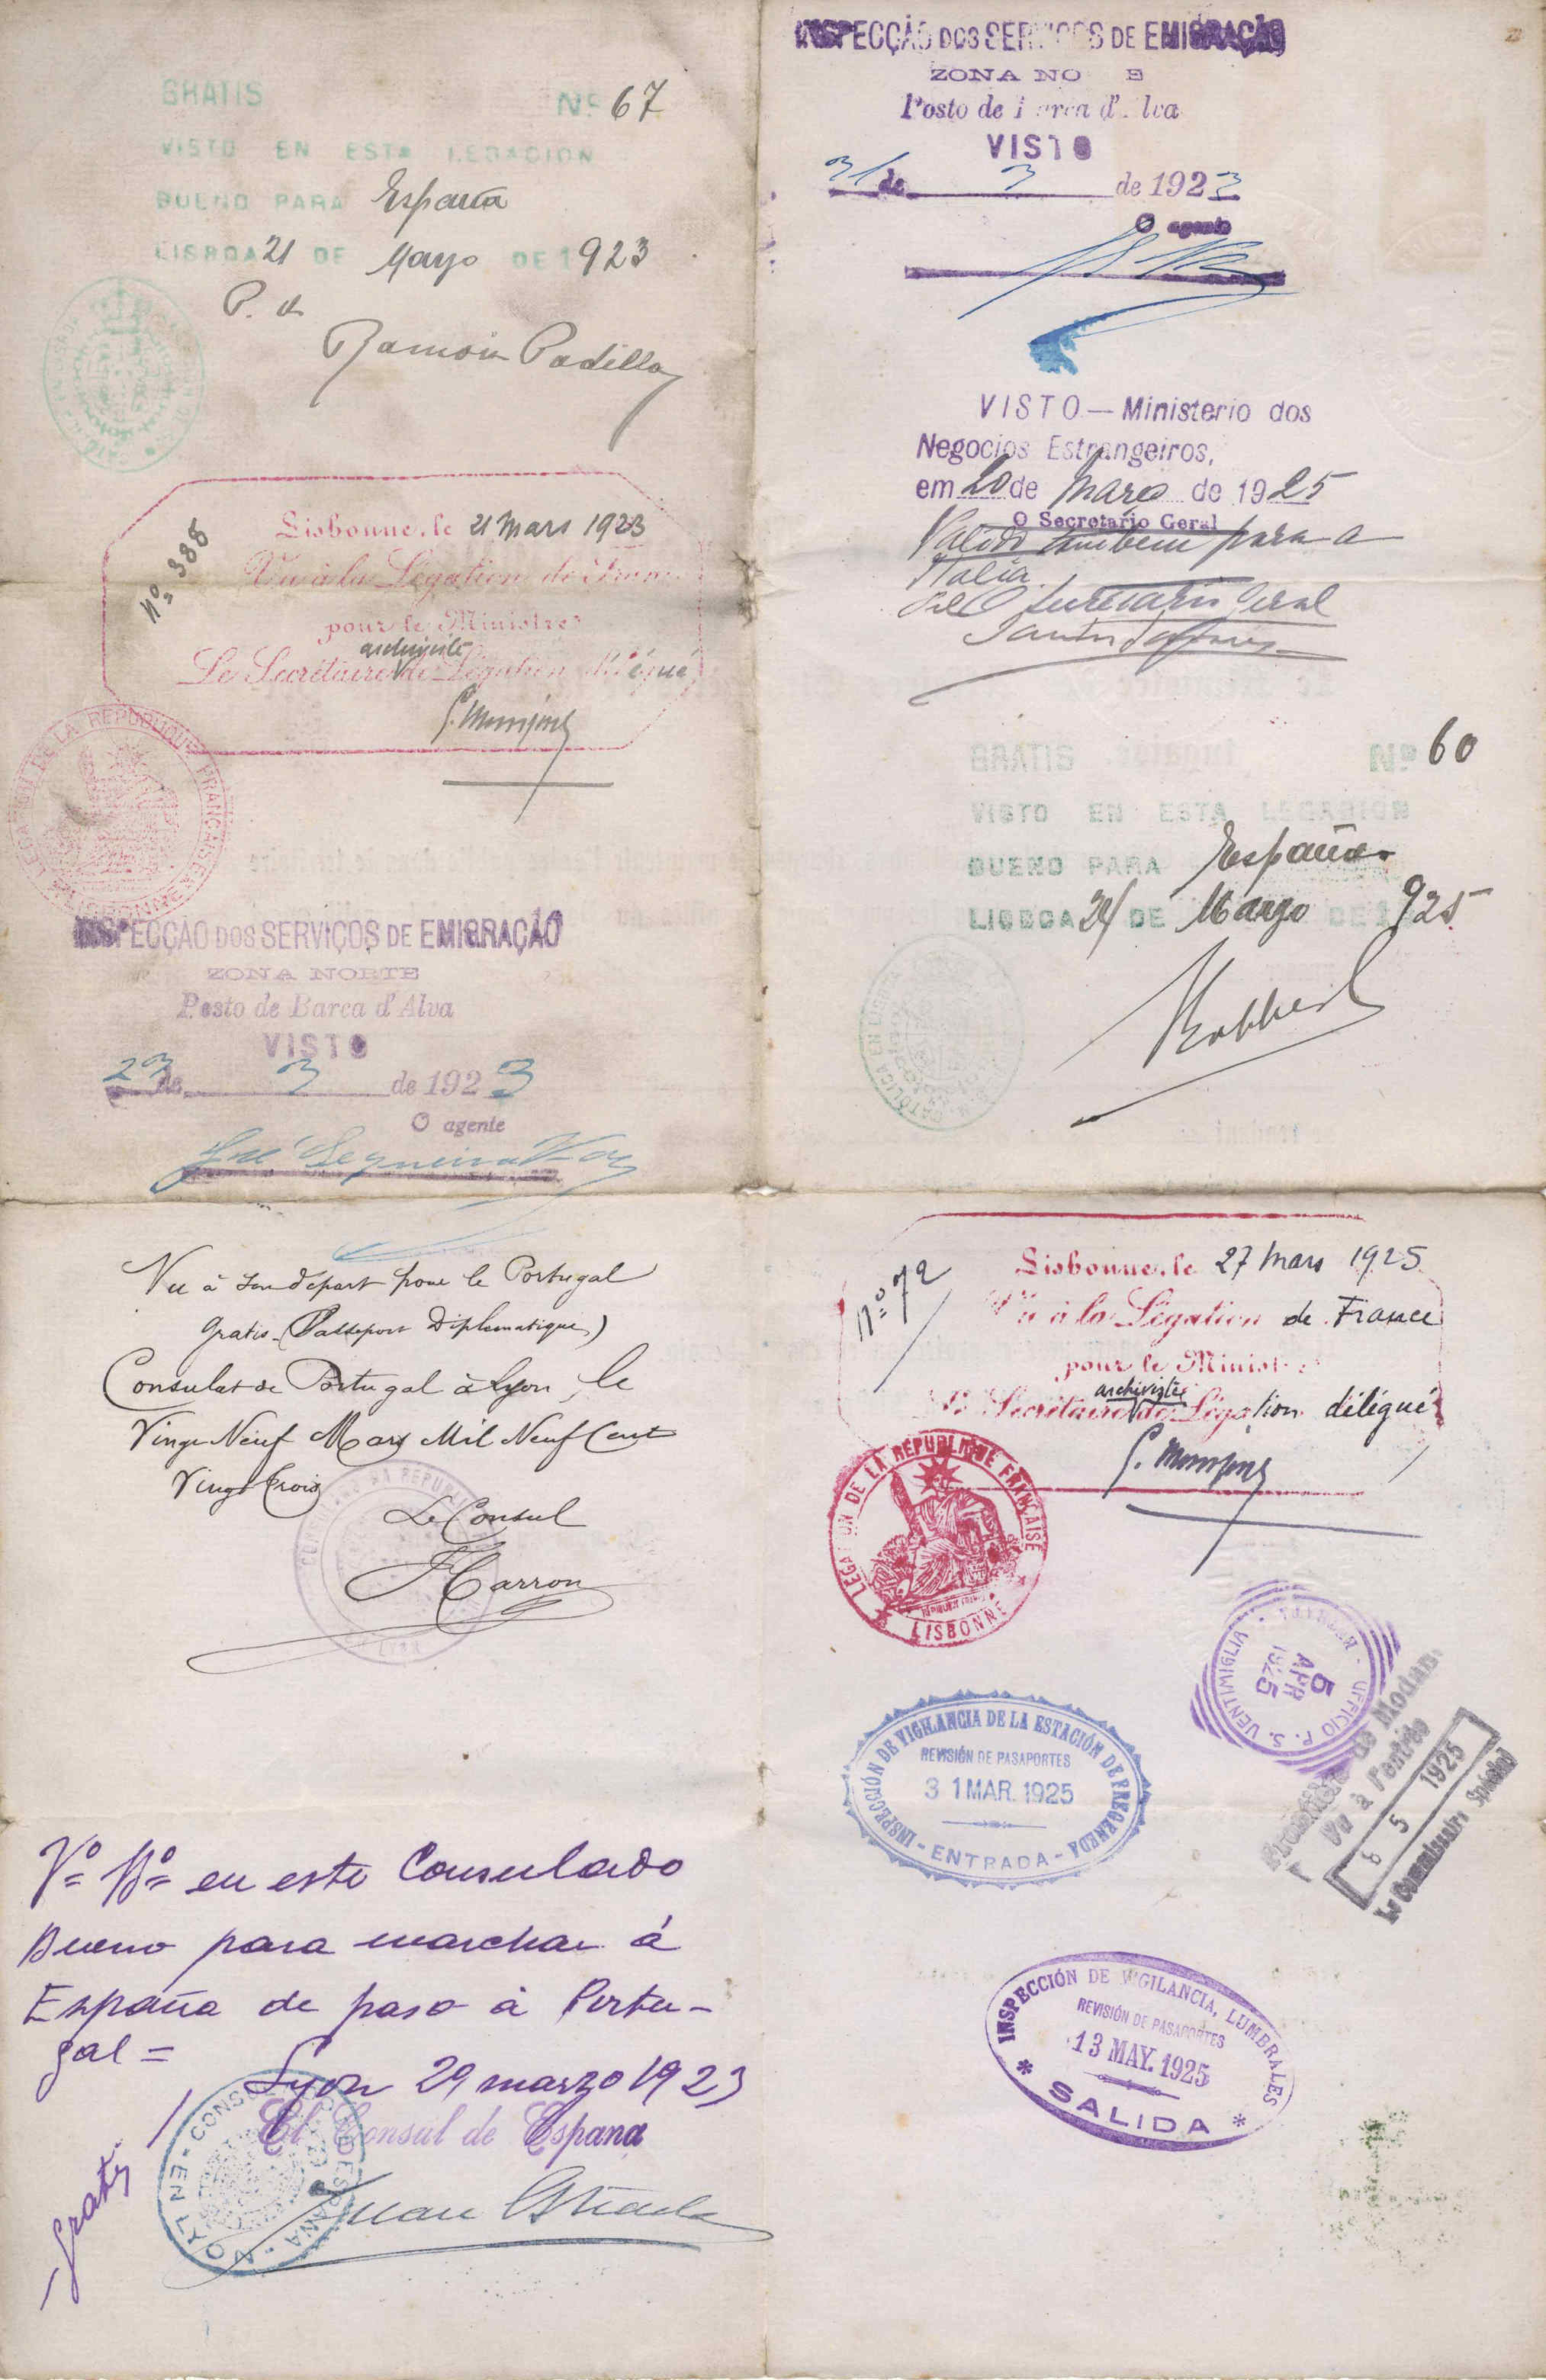 GRATIS Nº 67
VISTO EN ESTA LEGACION
BUENO PARA España
LISBOA 21 DE Mayo DE 1923
P. d.
Ramón Padilla
Nº 388
Lisbonne, le 21 Mars 1923
Vu à la Légation de
pour le Ministre
archiviste
Le Secrétaire de Légation
LA REPUBLIQUE FRANÇAISE
LISBONNE
INSPECÇÃO DOS SERVIÇOS DE EMIGRAÇÃO
ZONA NORTE
Posto de Barca d'Alva
VISTO
23 de 3 de 1923
O agente
José Sequeira
Vu à son départ pour le Portugal
Gratis (Passeport Diplomatique)
Consulat de Portugal à Lyon, le
Vingt Neuf Mars Mil Neuf Cent
Vingt Trois
Le Consul
Vº Bº en este Consulado
Bueno para marchar á
España de paso á Portu-
gal =
Lyon 29 marzo 1923
El Consul de Espana
Juan Estrada
CONSULADO DE ESPAÑA - EN LYON
Gratis
INSPECÇÃO DOS SERVIÇOS DE EMIGRAÇÃO
ZONA NO E
Posto de Barca d'Alva
VISTO
31 de 3 de 1923
O agente
VISTO — Ministerio dos
Negocios Estrangeiros,
em 20 de Março de 1925
O Secretario Geral
Valido tambem para a
Italia.
Pel O Secretario Geral
GRATIS Nº 60
VISTO EN ESTA LEGACION
BUENO PARA España
LISBOA 24 DE Marzo DE 1925
Nº 72
Lisbonne, le 27 Mars 1925
Vu à la Légation de France
pour le Ministre
archiviste
Secrétaire de Légation délégué
LEGATION DE LA REPUBLIQUE FRANÇAISE
LISBONNE
UFFICIO P. S. VENTIMIGLIA
5 APR 1925
INSPECCIÓN DE VIGILANCIA DE LA ESTACIÓN DE FREGENEDA
REVISIÓN DE PASAPORTES
31 MAR. 1925
- ENTRADA -
de Modane
Vu à l'entrée
6 5 1925
Le Commissaire Spécial
INSPECCIÓN DE VIGILANCIA, LUMBRALES
REVISIÓN DE PASAPORTES
13 MAY. 1925
* SALIDA *